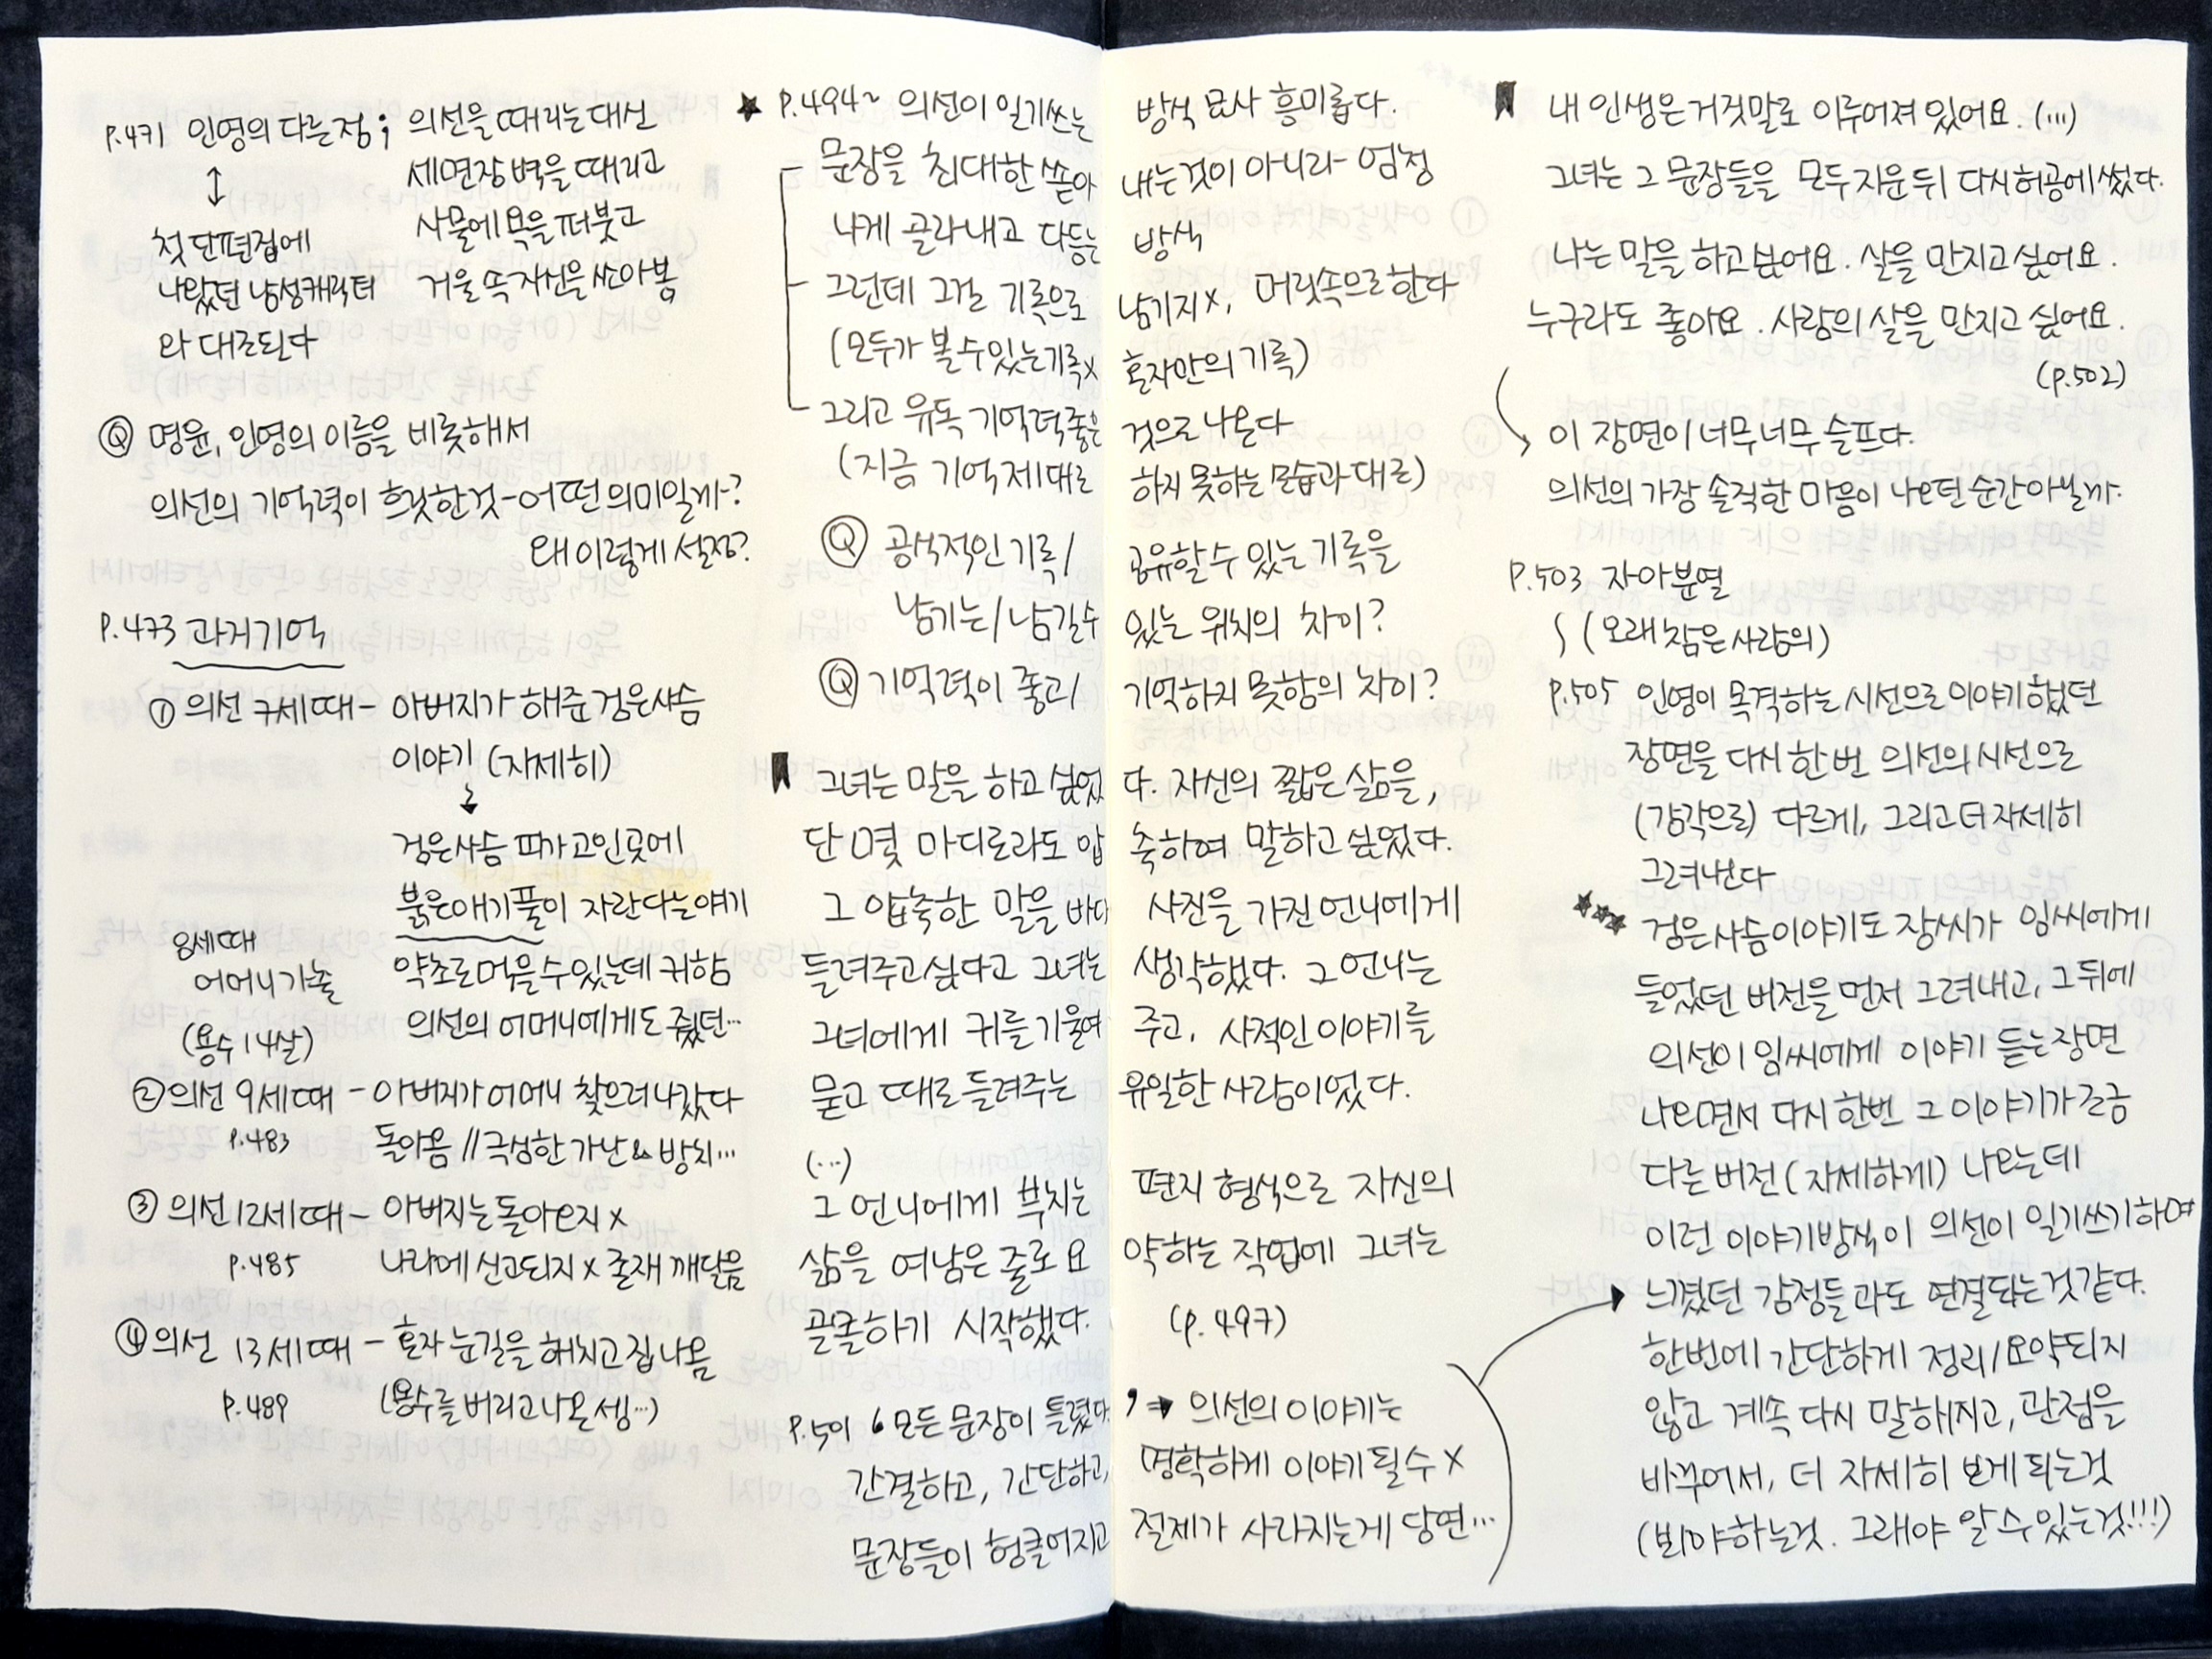 P.471 인영의 다른점; 의선을 때리는 대신
세면장 벽을 때리고
사물에 욕을 퍼붓고
거울 속 자신을 쏘아봄
↕
첫 단편집에
나왔던 남성캐릭터
와 대조된다
Ⓠ 명윤, 인영의 이름을 비롯해서
의선의 기억력이 흐릿한것-어떤 의미일까?
왜 이렇게 설정?
P.473 과거기억
① 의선 7세때 - 아버지가 해준 검은사슴
이야기 (자세히)
↓
검은사슴 피가 고인곳에
붉은애기풀이 자란다는 얘기
약초로 먹을 수 있는데 귀함
의선의 어머니에게도 줬던…
8세때
어머니가출
(용수 14살)
② 의선 9세때 - 아버지가 어머니 찾으러 나갔다
P.483 돌아옴 // 극심한 가난 & 방치…
③ 의선 12세때 - 아버지는 돌아오지 x
P.485 나라에 신고되지 x 존재 깨달음
④ 의선 13세때 - 혼자 눈길을 헤치고 집 나옴
P.489 (용수를 버리고 나온 셈…)
★ P.494~ 의선이 일기쓰는 방식 묘사 흥미롭다.
문장을 최대한 쏟아내는것이 아니라 엄청
나게 골라내고 다듬는 방식
그런데 그걸 기록으로 남기지x, 머릿속으로한다
(모두가 볼 수 있는 기록x 혼자만의 기록)
그리고 유독 기억력좋은 것으로 나온다
(지금 기억 제대로 하지 못하는 모습과 대조)
Ⓠ 공식적인 기록/ 공유할 수 있는 기록을
남기는/남길수 있는 위치의 차이?
Ⓠ 기억력이 좋고/ 기억하지 못함의 차이?
그녀는 말을 하고 싶었다. 자신의 짧은 삶을,
단 몇 마디로라도 압축하여 말하고 싶었다.
그 압축한 말을 사진을 가진 언니에게
들려주고 싶다고 그녀는 생각했다. 그 언니는
그녀에게 귀를 기울여 주고, 사적인 이야기를
묻고 때로 들려주는 유일한 사람이었다.
(…)
그 언니에게 부치는 편지 형식으로 자신의
삶을 여남은 줄로 요약하는 작업에 그녀는
골몰하기 시작했다. (p.497)
P.501 '모든 문장이 틀렸다' → 의선의 이야기는
간결하고, 간단하고, 명확하게 이야기 될 수 x
문장들이 헝클어지고 절제가 사라지는게 당연…
내 인생은 거짓말로 이루어져 있어요. (…)
그녀는 그 문장들을 모두 지운 뒤 다시 허공에 썼다.
나는 말을 하고 싶어요. 살을 만지고 싶어요.
누구라도 좋아요. 사람의 살을 만지고 싶어요.
(p.502)
이 장면이 너무너무 슬프다.
의선의 가장 솔직한 마음이 나오던 순간 아닐까.
P.503 자아분열
(오래 참은 사람의)
P.505 인영이 목격하는 시선으로 이야기했던
장면을 다시 한 번 의선의 시선으로
(감각으로) 다르게, 그리고 더 자세히
그려낸다
★★★ 검은사슴이야기도 장씨가 임씨에게
들었던 버전을 먼저 그려내고, 그 뒤에
의선이 임씨에게 이야기 듣는 장면
나오면서 다시 한번 그 이야기가 조금
다른 버전(자세하게) 나오는데
이런 이야기방식이 의선이 일기쓰기하며
느꼈던 감정들과도 연결되는것 같다.
한번에 간단하게 정리/요약되지
않고 계속 다시 말해지고, 관점을
바꾸어서, 더 자세히 보게 되는것
(봐야하는것. 그래야 알 수 있는것!!!)